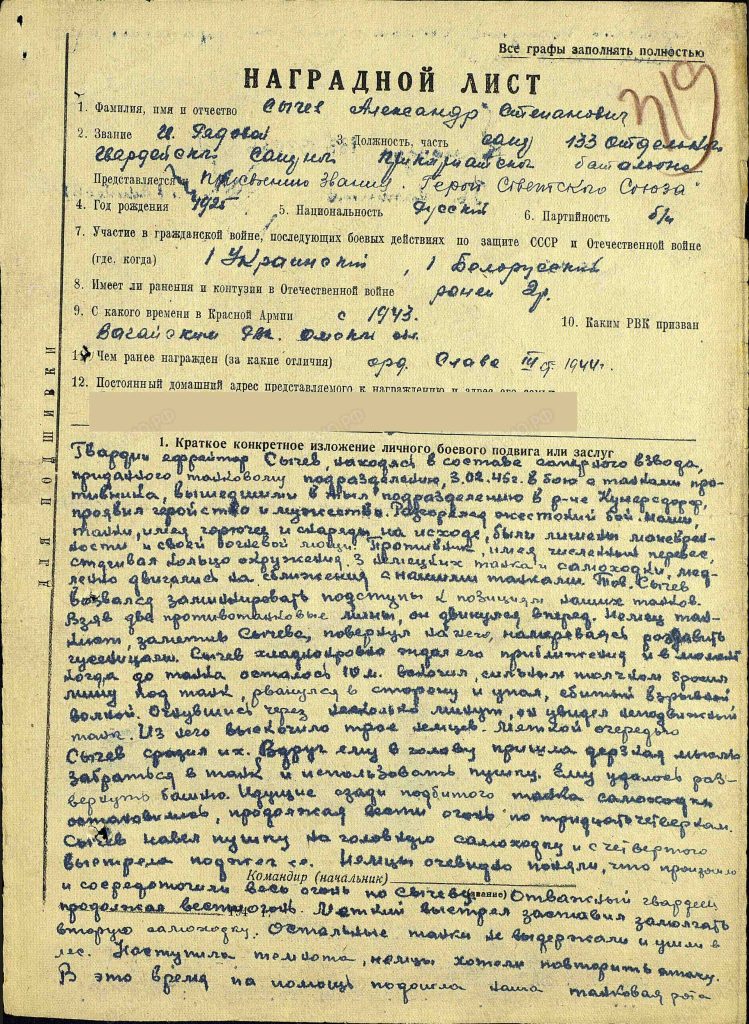 Все графы заполнять полностью
НАГРАДНОЙ ЛИСТ
319
1. Фамилия, имя и отчество Сычев Александр Степанович
2. Звание гв. Рядовой 3. Должность, часть сапер 133 отдельного
Гвардейского Саперного Прикарпатского батальона
Представляется к присвоению звания "Герой Советского Союза"
4. Год рождения 1925 5. Национальность Русский 6. Партийность б/п
7. Участие в гражданской войне, последующих боевых действиях по защите СССР и Отечественной войне
(где, когда) 1 Украинский, 1 Белорусский
8. Имеет ли ранения и контузии в Отечественной войне ранен
9. С какого времени в Красной Армии с 1943. 10. Каким РВК призван
Вагайским РВК. Омской обл.
11. Чем ранее награжден (за какие отличия) орд. Слава III ст 1944г.
12. Постоянный домашний адрес представляемого к награждению и адрес его семьи
ДЛЯ ПОДШИВКИ
1. Краткое конкретное изложение личного боевого подвига или заслуг
Гвардии ефрейтор Сычев, находясь в составе саперного взвода,
приданного танковому подразделению, 3.02.45г. в бою с танками про-
тивника, вышедшими в тыл подразделению в р-не Кунерсдорф,
проявил геройство и мужество. Разгорелся жестокий бой. Наши
танки, имея горючее и снаряды на исходе, были лишены маневрен-
ности и своей огневой мощи. Противник, имея численный перевес,
стягивал кольцо окружения. 3 немецких танка и самоходки, мед-
ленно двигались на сближения с нашими танками. Тов. Сычев
вызвался заминировать подступы к позициям наших танков.
Взяв два противотанковые мины, он двинулся вперед. Немец тан-
кист, заметив Сычева, повернул на него, намереваясь раздавить
гусеницами. Сычев хладнокровно ждал его приближения и в момент
когда до танка осталось 10 м. вскочил, сильным толчком бросил
мину под танк, рванулся в сторону и упал, сбитый взрывной
волной. Очнувшись через несколько минут, он увидел неподвижный
танк. Из него выскочило трое немцев. Меткой очередью
Сычев сразил их. Вдруг ему в голову пришла дерзкая мысль
забраться в танк и использовать пушку. Ему удалось раз-
вернуть башню. Идущие сзади подбитого танка самоходки
остановились, продолжая вести огонь по тридцатьчетверкам.
Сычев навел пушку на головную самоходку и с четвертого
выстрела поджег ее. Немцы очевидно поняли, что произошло
Командир (начальник)
и сосредоточили весь огонь по Сычеву. (звание) Отважный гвардеец
продолжал вести огонь. Меткий выстрел заставил замолчать
вторую самоходку. Остальные танки не выдержали и ушли в
лес. Наступила темнота, немцы хотели повторить атаку.
В это время на помощь подошла наша танковая рота